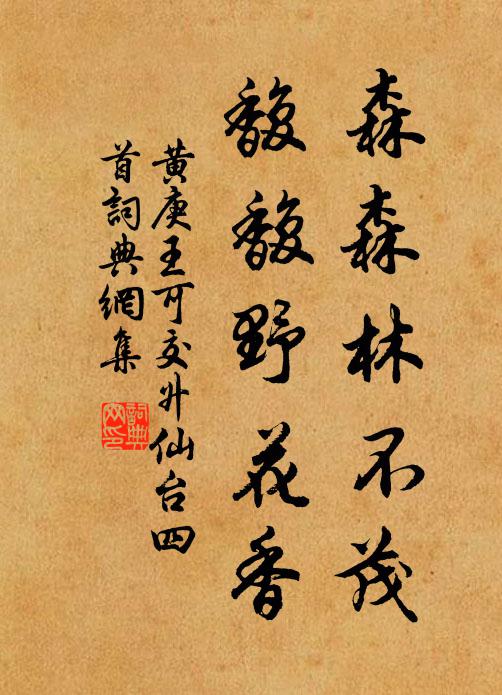 森森林不茂
馥馥野花香
黄庚王可交升仙台四
首詞典網集
詞典網印